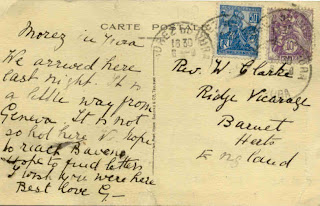 CARTE POSTALE
Morez in Jura
We arrived here
last night. It is
a little way from
Geneva. It is not
so hot here. We hope
to reach Baveno
hope to find letters
I wish you were here
Best love G—
MOREZ
1930
Rev. W. Clarke
Ridge Vicarage
Barnet
Herts
England